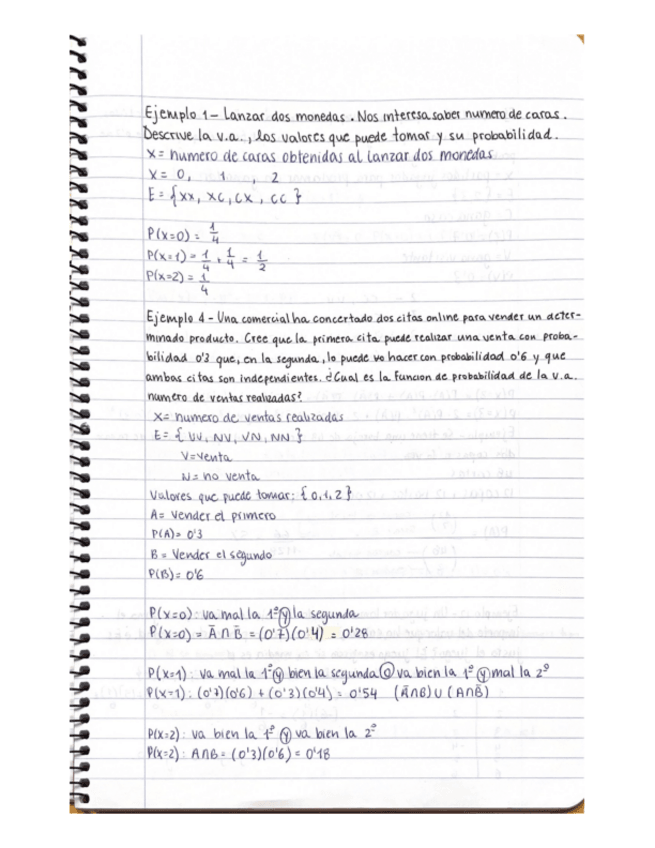 Ejemplo 1 - Lanzar dos monedas. Nos interesa saber numero de caras.
Descrive la v.a., los valores que puede tomar y su probabilidad.
X = numero de caras obtenidas al lanzar dos monedas
X = 0, 1 2
E = {XX, XC, CX, CC}
P(X=0) = 1/4
P(X=1) = 1/4 + 1/4 = 1/2
P(X=2) = 1/4
Ejemplo 4 - Una comercial ha concertado dos citas online para vender un deter-
minado producto. Cree que la primera cita puede realizar una venta con proba-
bilidad 0'3 que, en la segunda, lo puede hacer con probabilidad 0'6 y que
ambas citas son independientes. ¿Cual es la funcion de probabilidad de la v.a.
numero de ventas realizadas?
X = numero de ventas realizadas
E = {VV, NV, VN, NN}
V = venta
N = no venta
Valores que puede tomar: {0,1,2}
A = Vender el primero
P(A) = 0'3
B = Vender el segundo
P(B) = 0'6
P(X=0): va mal la 1º y la segunda
P(X=0) = A̅ ∩ B̅ = (0'7)(0'4) = 0'28
P(X=1): va mal la 1º y bien la segunda o va bien la 1º y mal la 2º
P(X=1): (0'7)(0'6) + (0'3)(0'4) = 0'54 (A̅∩B) ∪ (A∩B̅)
P(X=2): va bien la 1º y va bien la 2º
P(X=2): A∩B = (0'3)(0'6) = 0'18